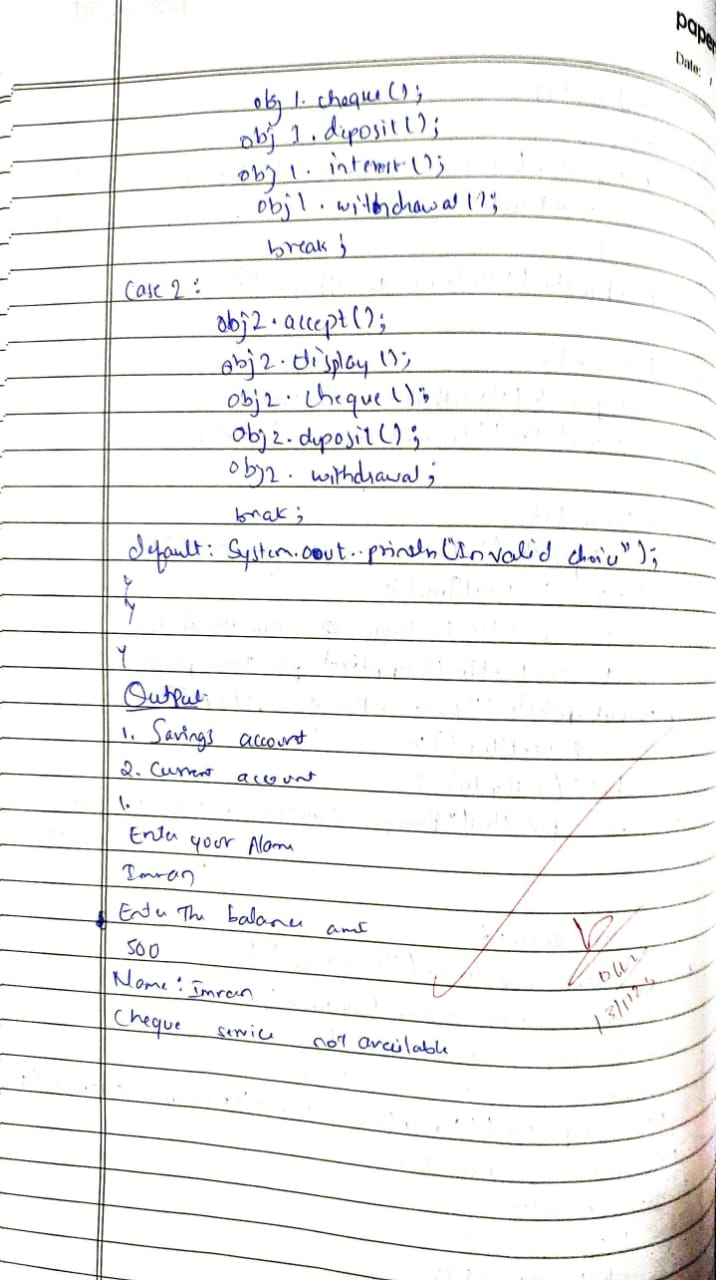 paper
Date: /
obj 1. cheque();
obj 1. deposit();
obj 1. interest();
obj1. withdrawal();
break;
Case 2:
obj2. accept();
obj2. display();
obj2. cheque();
obj2. deposit();
obj2. withdrawal;
break;
default: System.oout..println("Invalid choice");
}
}
}
Output
1. Savings account
2. Current account
1.
Enter your Name
Imran
Enter The balance amt
500
Name: Imran
Cheque service not available